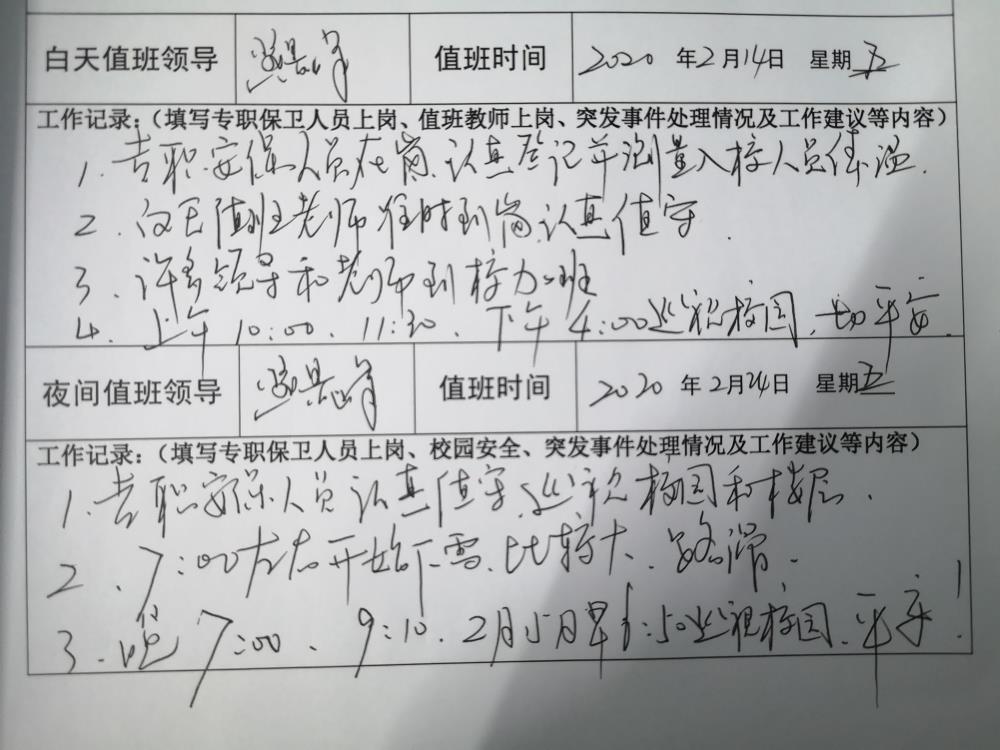 白天值班领导 值班时间 2020 年2月14日 星期五
工作记录：（填写专职保卫人员上岗、值班教师上岗、突发事件处理情况及工作建议等内容）
1. 专职安保人员在岗,认真登记并测量入校人员体温.
2. 白天值班老师准时到岗,认真值守.
3. 许多领导和老师到校加班
4. 上午10:00. 11:30. 下午4:00巡视校园,一切平安.
夜间值班领导 值班时间 2020 年2月24日 星期五
工作记录：（填写专职保卫人员上岗、校园安全、突发事件处理情况及工作建议等内容）
1. 专职安保人员认真值守,巡视校园和楼层.
2. 7:00左右开始下雪,比较大、路滑.
3. 晚7:00、9:10. 2月15日早:50巡视校园,平安!